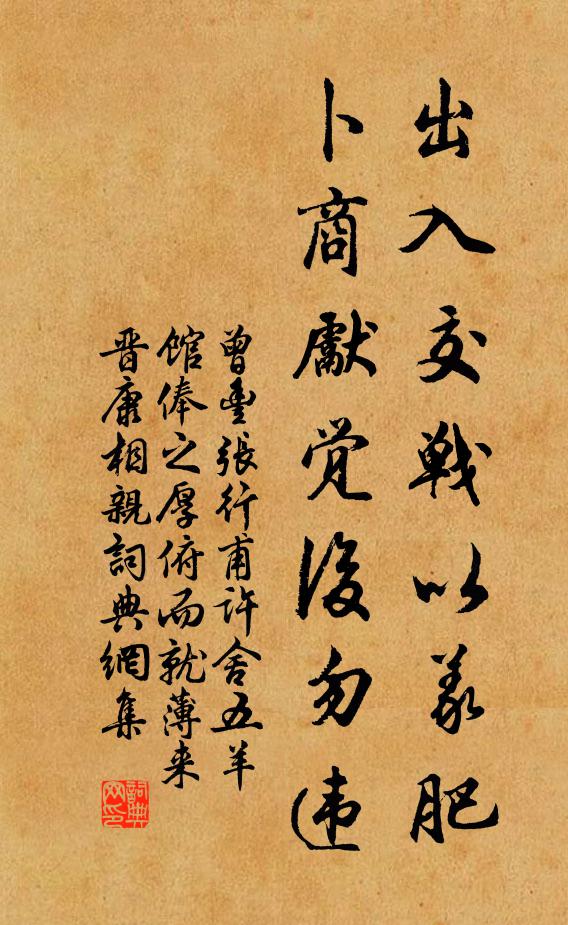 出入交戰以義肥
卜商獻觉後勿违
曾豊張行甫許舍五羊
館俸之厚俯而就薄来
晋康相親詞典網集
詞典網印